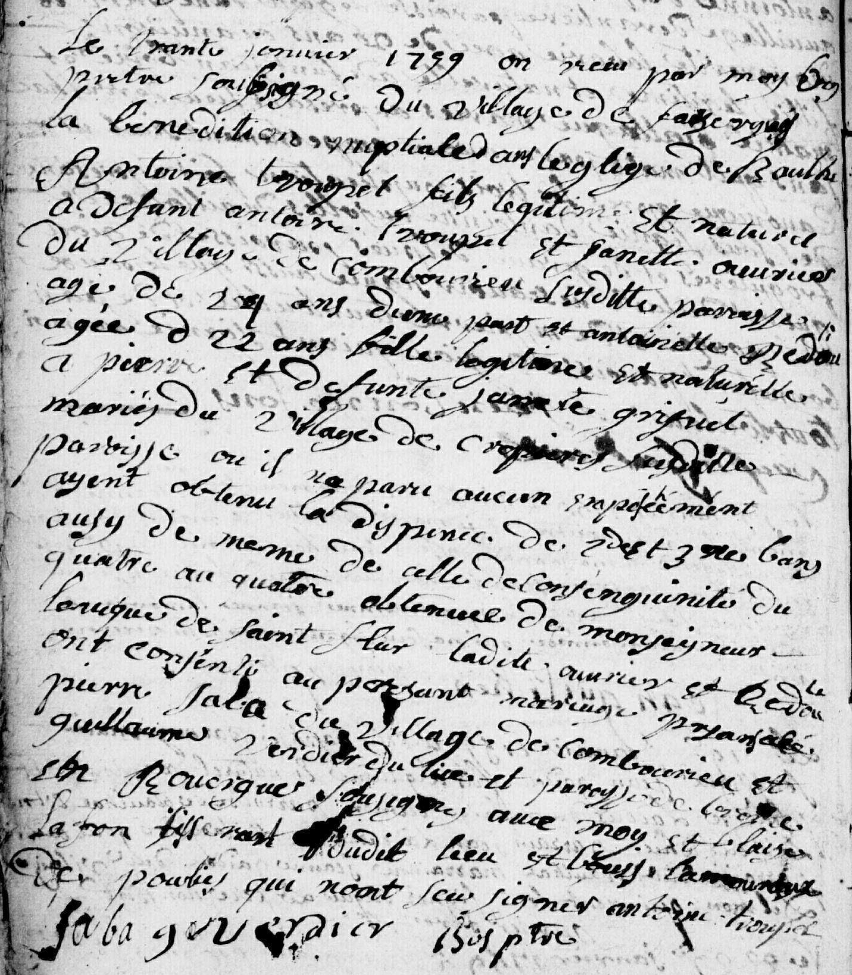 Le trante janvier 1759 on reseu par moy
pretre soussigné du village de
la benedition nuptiale dans leglize de
Antoine troupel fils legitime et naturel
a defunt antoine troupel et janette ouvrier
du village de Combourieu susditte paroisse
age de 24 ans dune part et antoinette Redou
agée d 22 ans fille legitime et naturelle
a pierre et defunte janete grifuel
mariés du village de susditte
paroisse ou il na paru aucun empeschement
ayent obtenu la dispence de 2 et 3me bans
ausy de meme de celle de consenguinité du
quatre au quatre obtenues de monseigneur
levque de saint flur ladite ouvrier et Redou
ont consenti au present mariage presents
pierre saba du village de Combourieu et
guillaume verdier du lieu et paroisse de
en Rouergue sousignes avec moy et blaise
tisserant dudit lieu et
de qui nont seu signer antoine troupel
saba g verdier Bos ptre